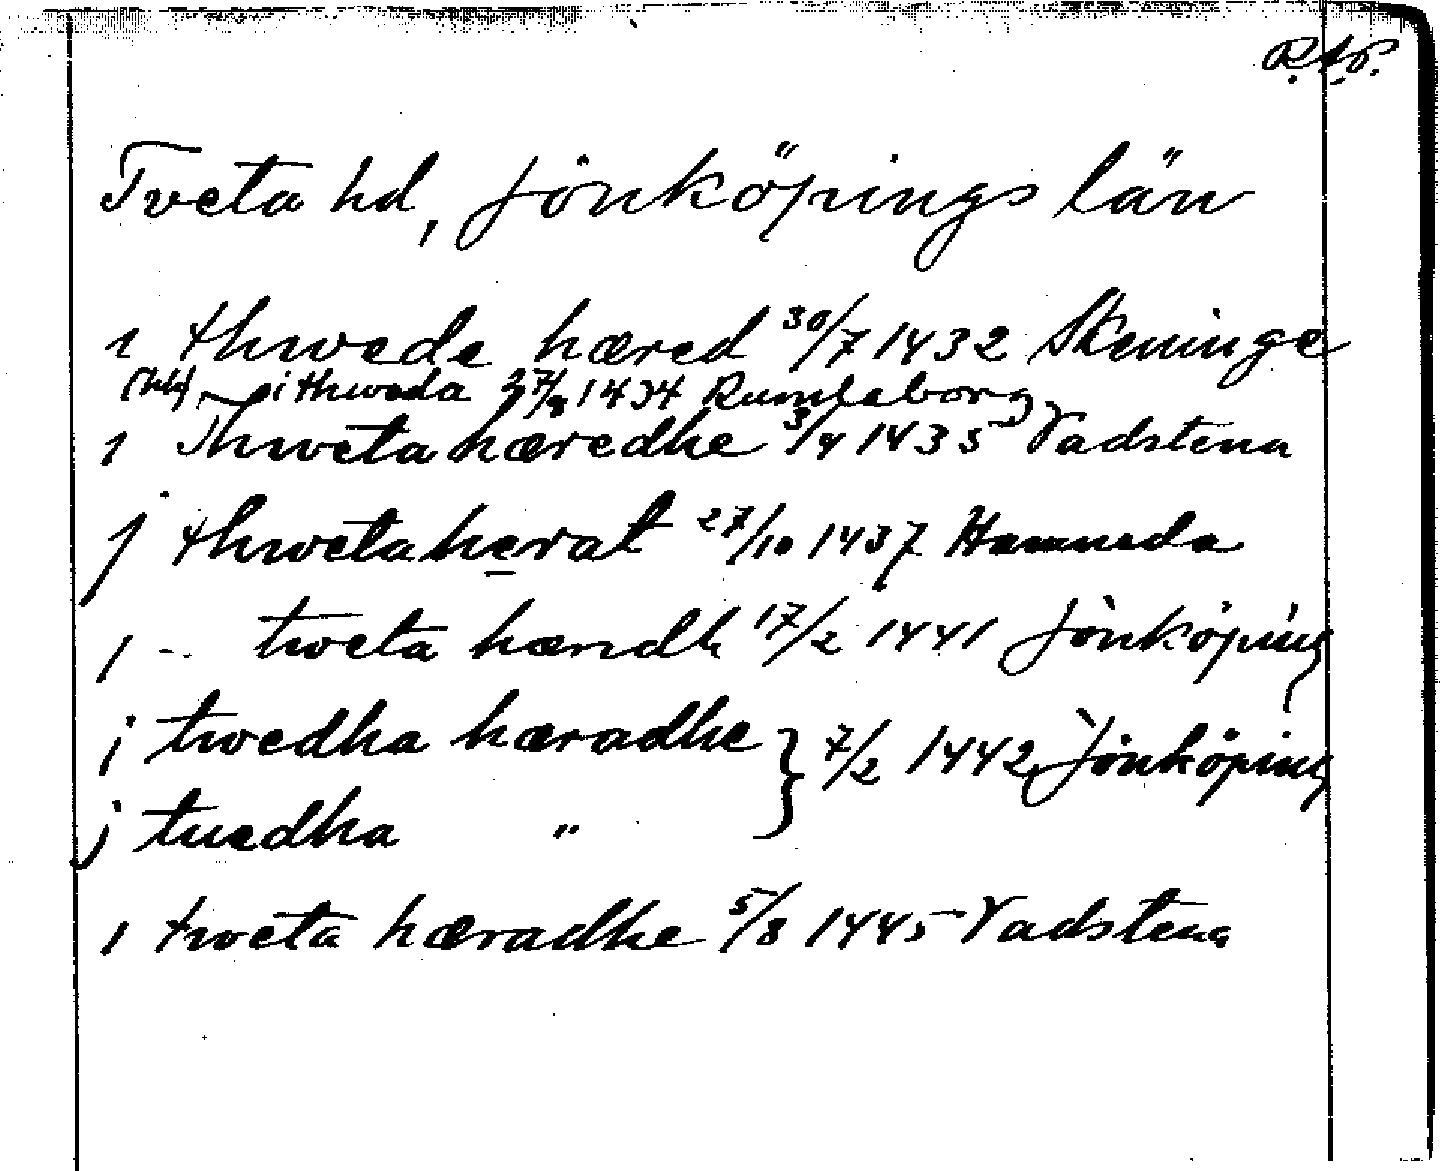 R.A.P.
Tveta hd, Jönköpings län
i thwede hæred 30/7 1432 Skeninge
i thweda 27/8 1434 Rumlaborg
i Thweta hæredhe 3/4 1435 Vadstena
j thweta herat 27/10 1437 Hamneda
j -- tweta hæradh 17/2 1441 Jönköping
j twedha hæradhe } 7/2 1442 Jönköping
j tuedha "
i tweta hæradhe 5/8 1445 Vadstena